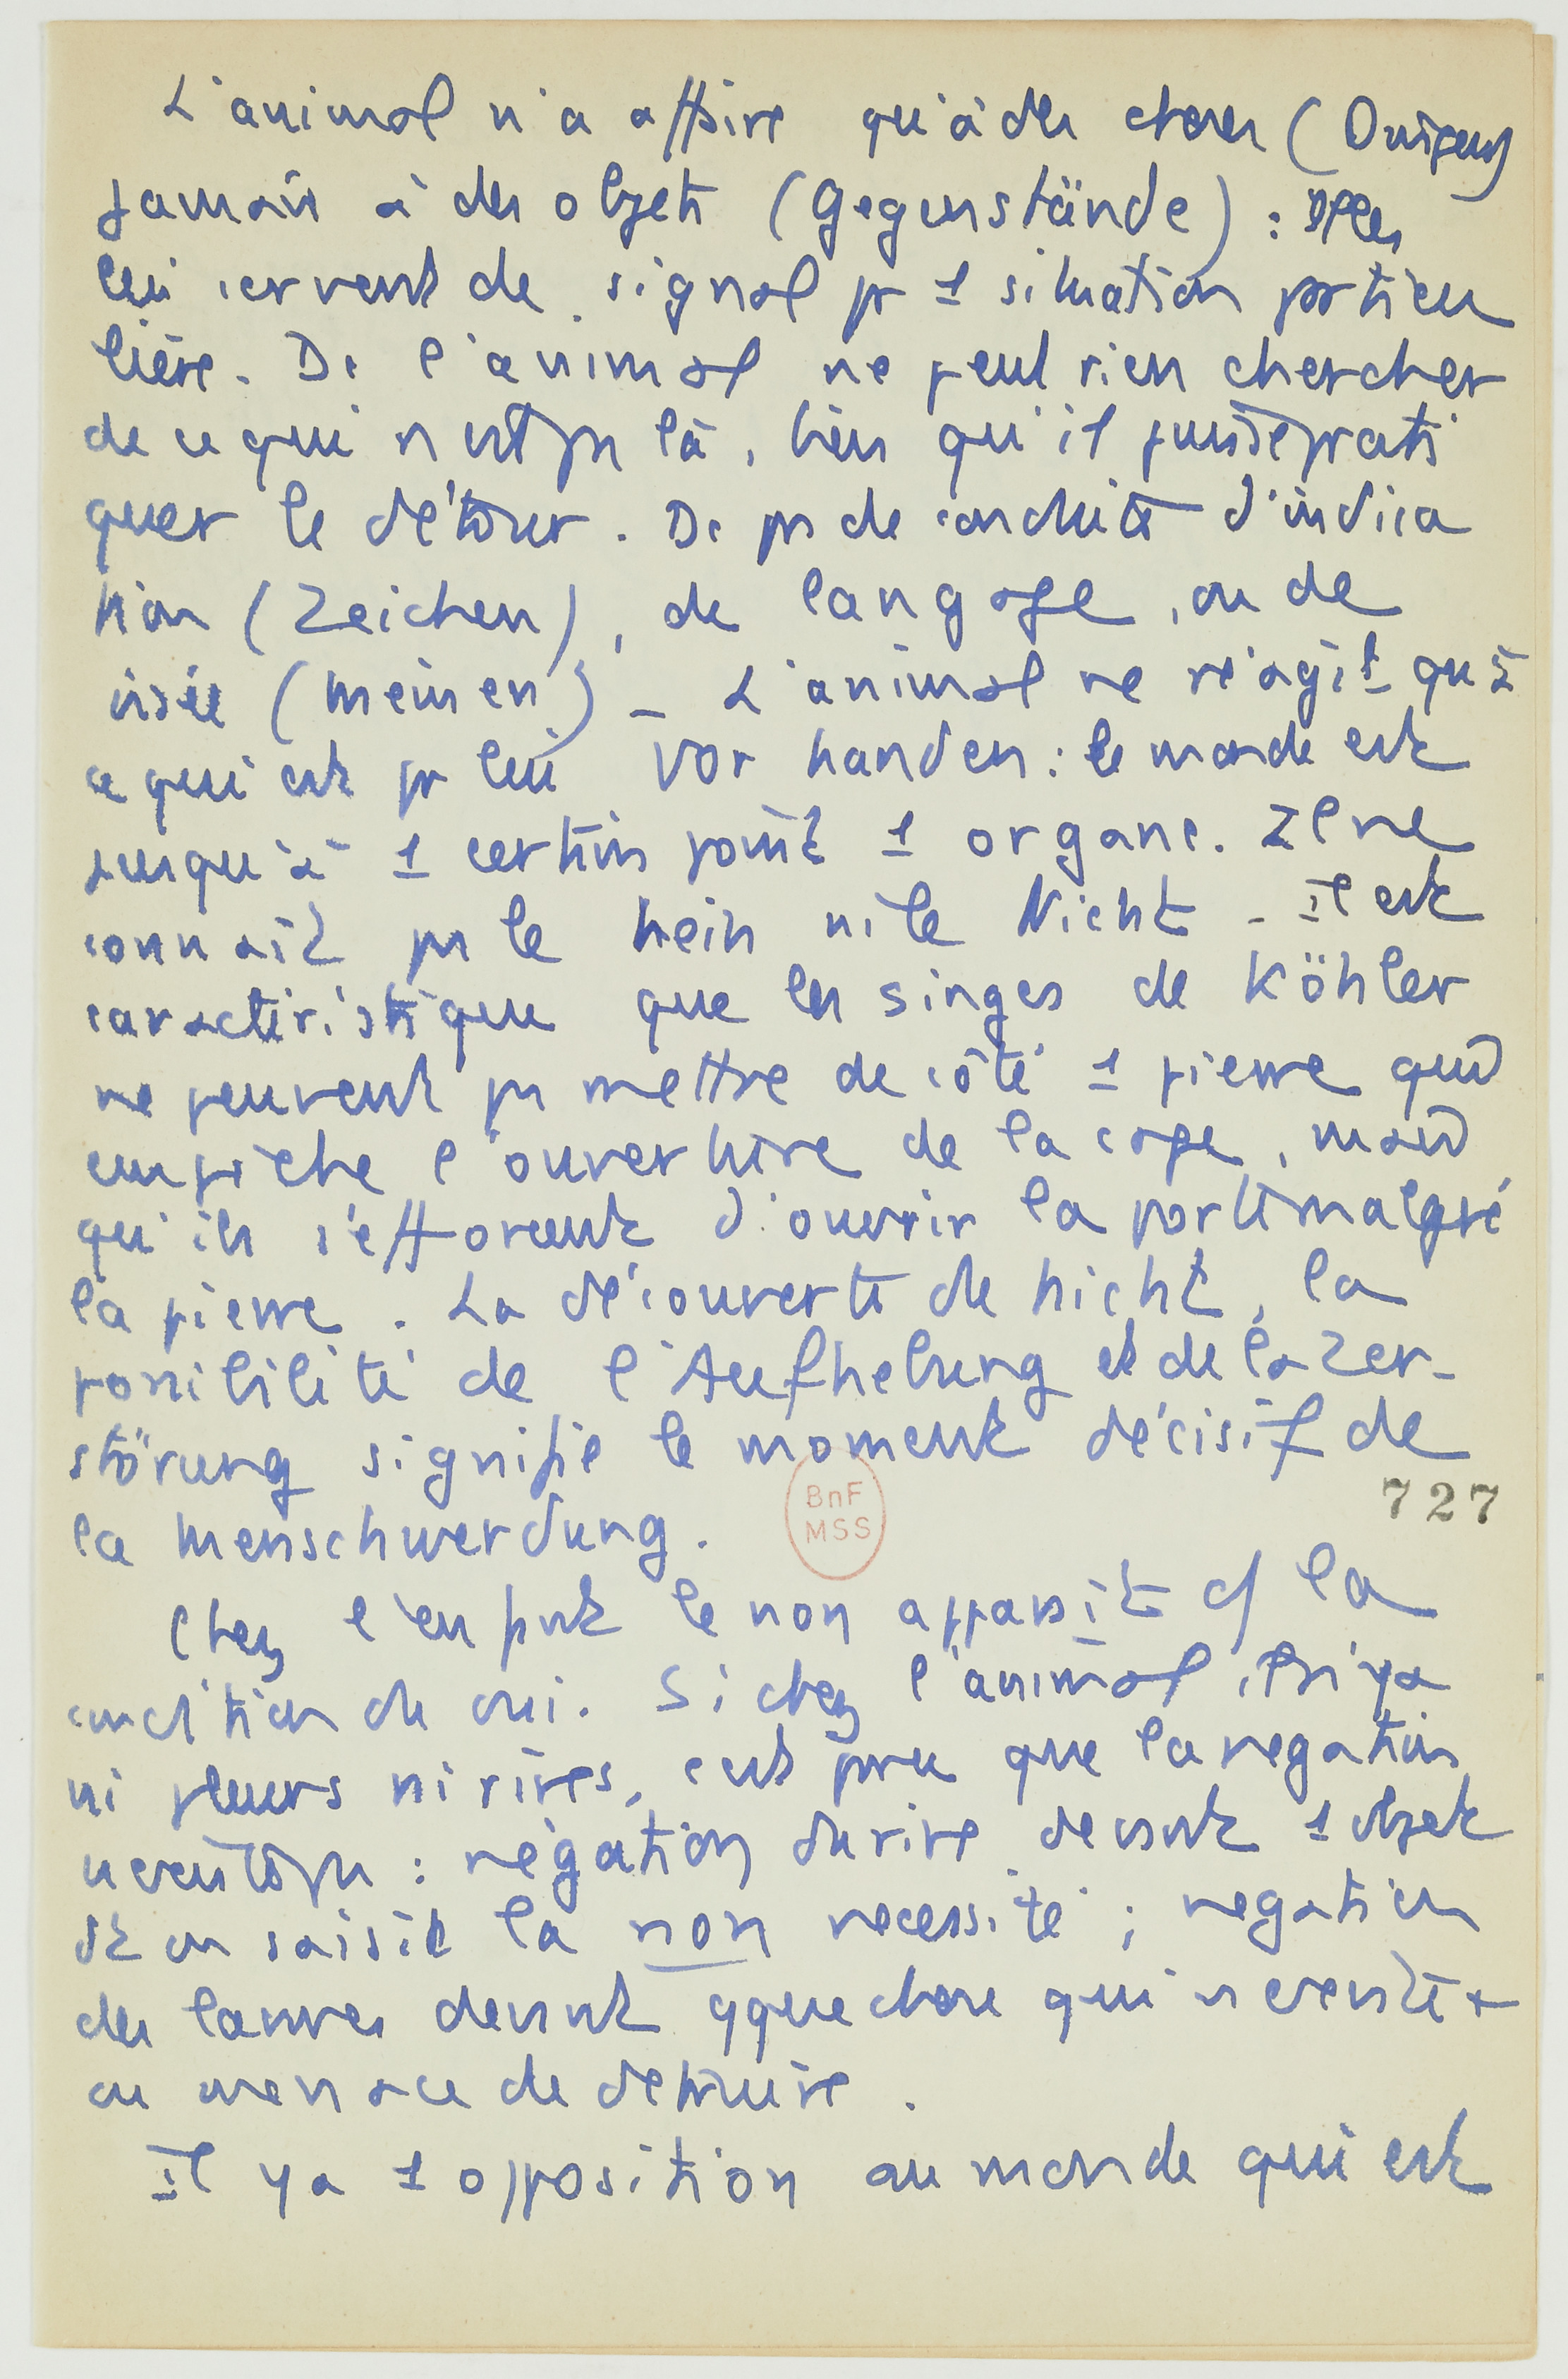 L'animal n'a affaire qu'à des choses (Dingen)
jamais à des objets (Gegenstände) : elles
lui servent de signal pr 1 situation particu
lière. Dc l'animal ne peut rien chercher
de ce qui n'est pas là, bien qu'il puisse prati
quer le détour. Dc pas de conduite d'indica
tion (Zeichen), de langage, ou de
visée (meinen) _ L'animal ne réagit qu'à
ce qui est pr lui Vorhanden : le monde est
jusqu'à 1 certain point 1 organe. Il ne
connaît pas le nein ni le Nicht - il est
caractéristique que les singes de Köhler
ne peuvent pas mettre de côté 1 pierre qui
empêche l'ouverture de la cage, mais
qu'ils s'efforcent d'ouvrir la porte malgré
la pierre. La découverte du nicht, la
possibilité de l'Aufhebung et de la Zer-
störung signifie le moment décisif de
la Menschwerdung.
727
BnF
MSS
Chez l'enfant le non apparaît c/ la
condition du oui. Si chez l'animal, il n'y a
ni pleurs ni rires, c'est parce que la negation
n'existe pas : négation du rire devant 1 objet
dt on saisit la non necessité ; negation
des larmes devant qque chose qui n'existe +
ou menace de detruire.
il y a 1 opposition au monde qui est